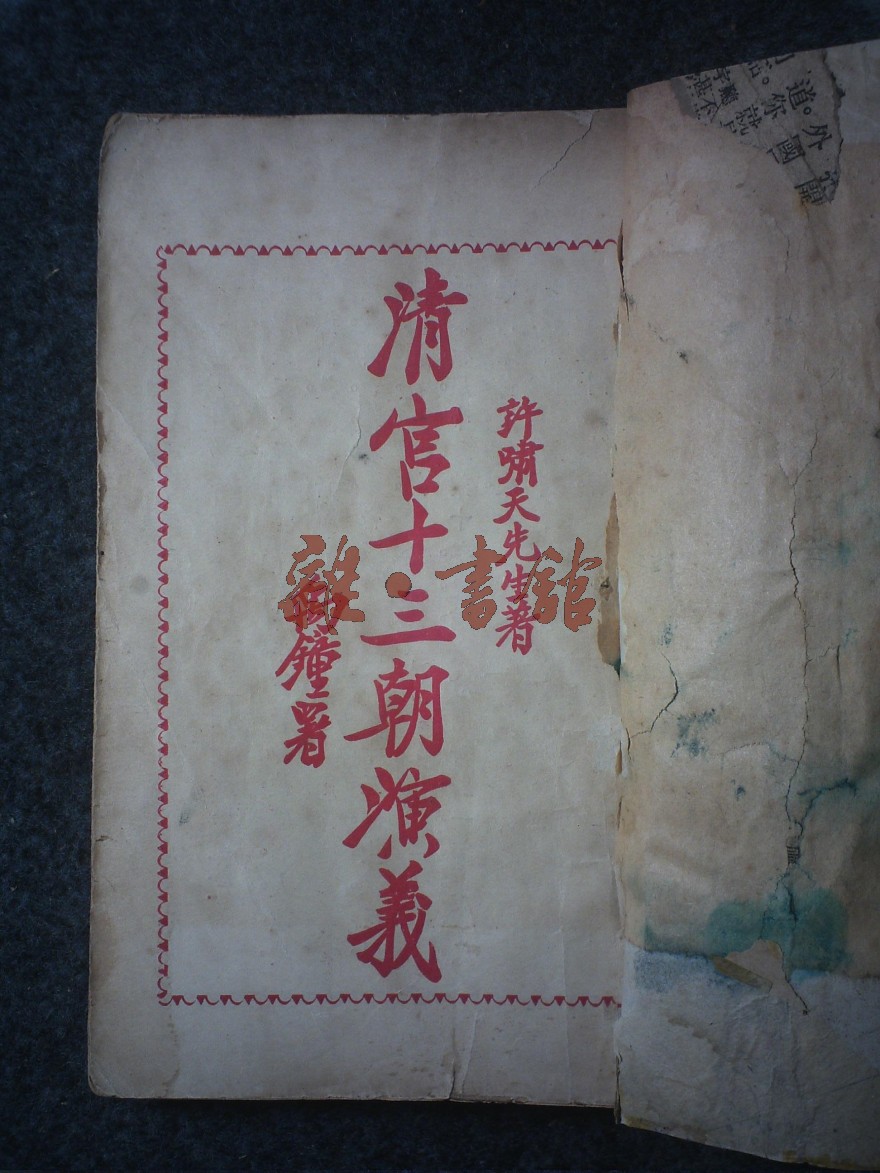 許嘯天先生著
清宮十三朝演義
鐘署
雜·書館
道。外
。你國開